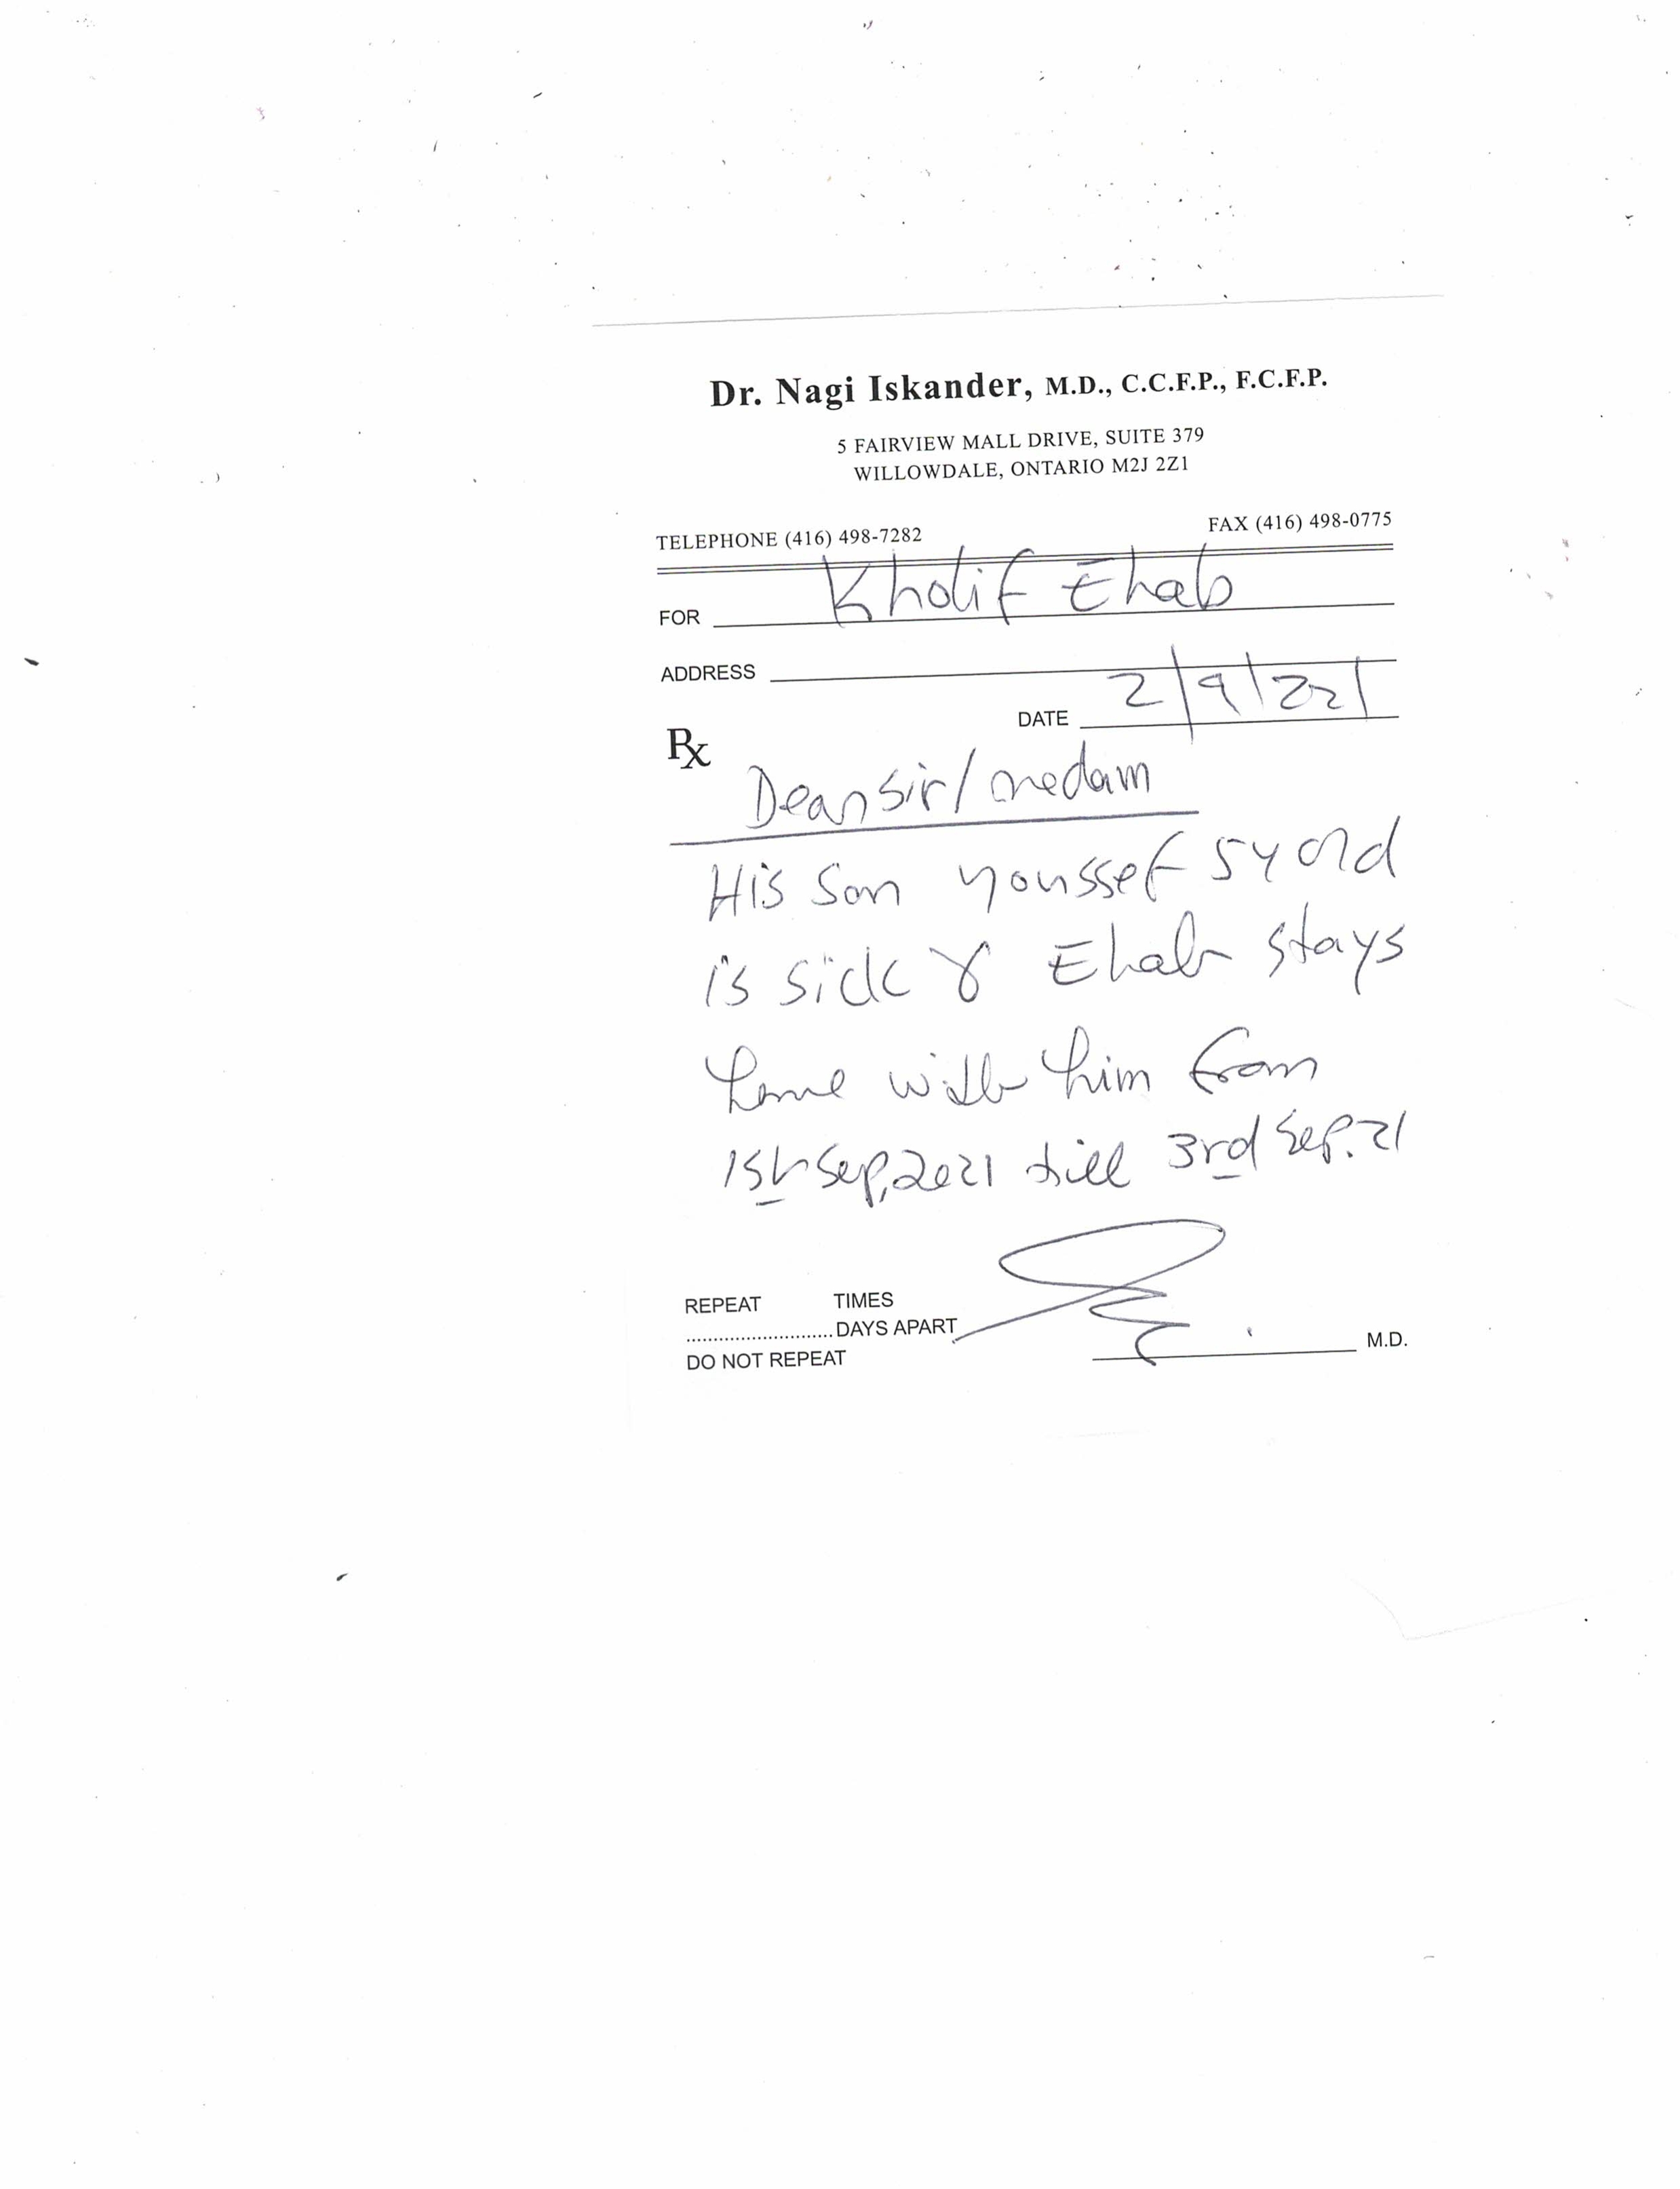 Dr. Nagi Iskander, M.D., C.C.F.P., F.C.F.P.
5 FAIRVIEW MALL DRIVE, SUITE 379
WILLOWDALE, ONTARIO M2J 2Z1
TELEPHONE (416) 498-7282 FAX (416) 498-0775
FOR Kholif Ehab
ADDRESS
DATE 2/9/221
Rx
Dear Sir/ medam
His Son youssef 5y old
is sick & Ehab stays
home with him from
1st Sep, 2021 till 3rd Sep. 21
REPEAT TIMES
...........................DAYS APART
DO NOT REPEAT M.D.